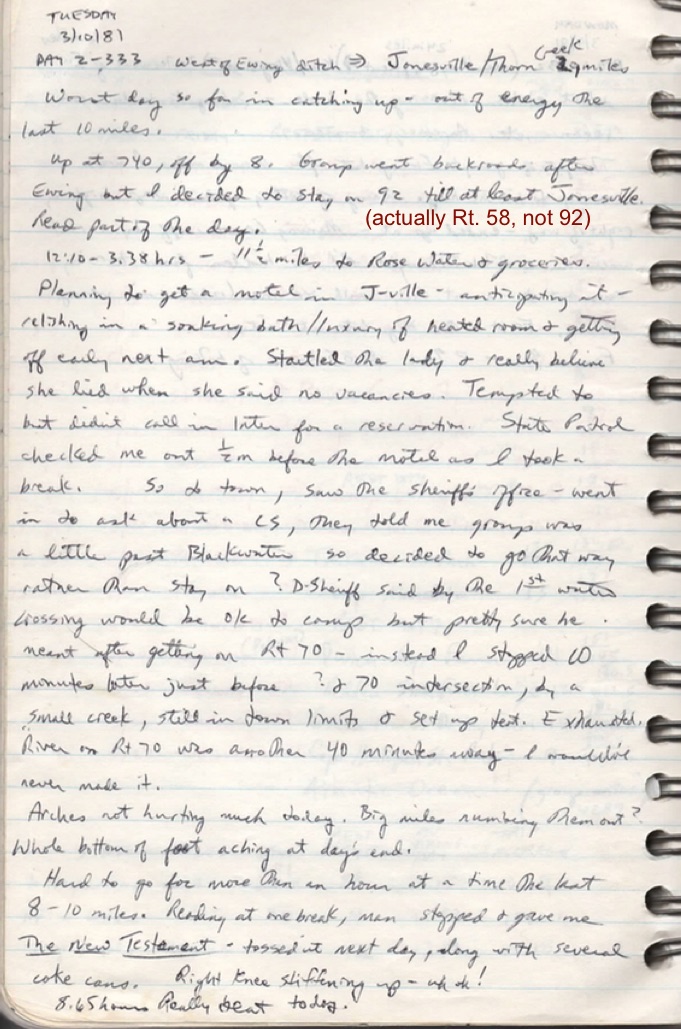 TUESDAY
3/10/81
DAY 2-333 West of Ewing ditch ⇒ Jonesville/Thorn Creek 29 miles
Worst day so far in catching up - out of energy the
last 10 miles.
Up at 740, off by 8. Group went backroads after
Ewing but I decided to stay on 92 till at least Jonesville.
Read part of the day.
(actually Rt. 58, not 92)
12:10 - 3.38 hrs - 11 1/2 miles to Rose Water & groceries.
Planning to get a motel in J-ville - anticipating it -
relishing in a soaking bath//luxury of heated room & getting
off early next am. Startled the lady & really believe
she lied when she said no vacancies. Tempted to
but didn't call in later for a reservation. State Patrol
checked me out 1/2 m before the motel as I took a
break. So to town, saw the sheriff's office - went
in to ask about a CS, they told me group was
a little past Blackwater so decided to go that way
rather than stay on ? D-Sheriff said by the 1st water
crossing would be ok to camp but pretty sure he
meant after getting on Rt 70 - instead I stopped 10
minutes later just before ? & 70 intersection, by a
small creek, still in town limits & set up tent. Exhausted.
River on Rt 70 was another 40 minutes away - I would've
never made it.
Arches not hurting much today. Big miles numbing them out?
Whole bottom of foot aching at day's end.
Hard to go for more than an hour at a time the last
8-10 miles. Reading at one break, man stopped & gave me
The New Testament - tossed it next day, along with several
coke cans. Right knee stiffening up - uh oh!
8.65 hours Really beat today.